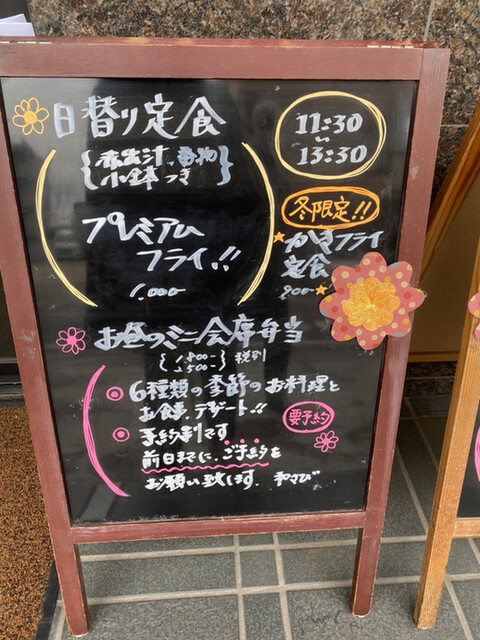 日替り定食
11:30
〜
13:30
{赤出汁、香物
小鉢つき}
プレミアム
フライ!!
1,000-
冬限定!!
かきフライ
定食
900-
お昼のミニ会席弁当
税別
6種類の季節のお料理と
お食事、デザート!!
要予約
予約制です
前日までに、ご予約を
お願い致します。 和さび